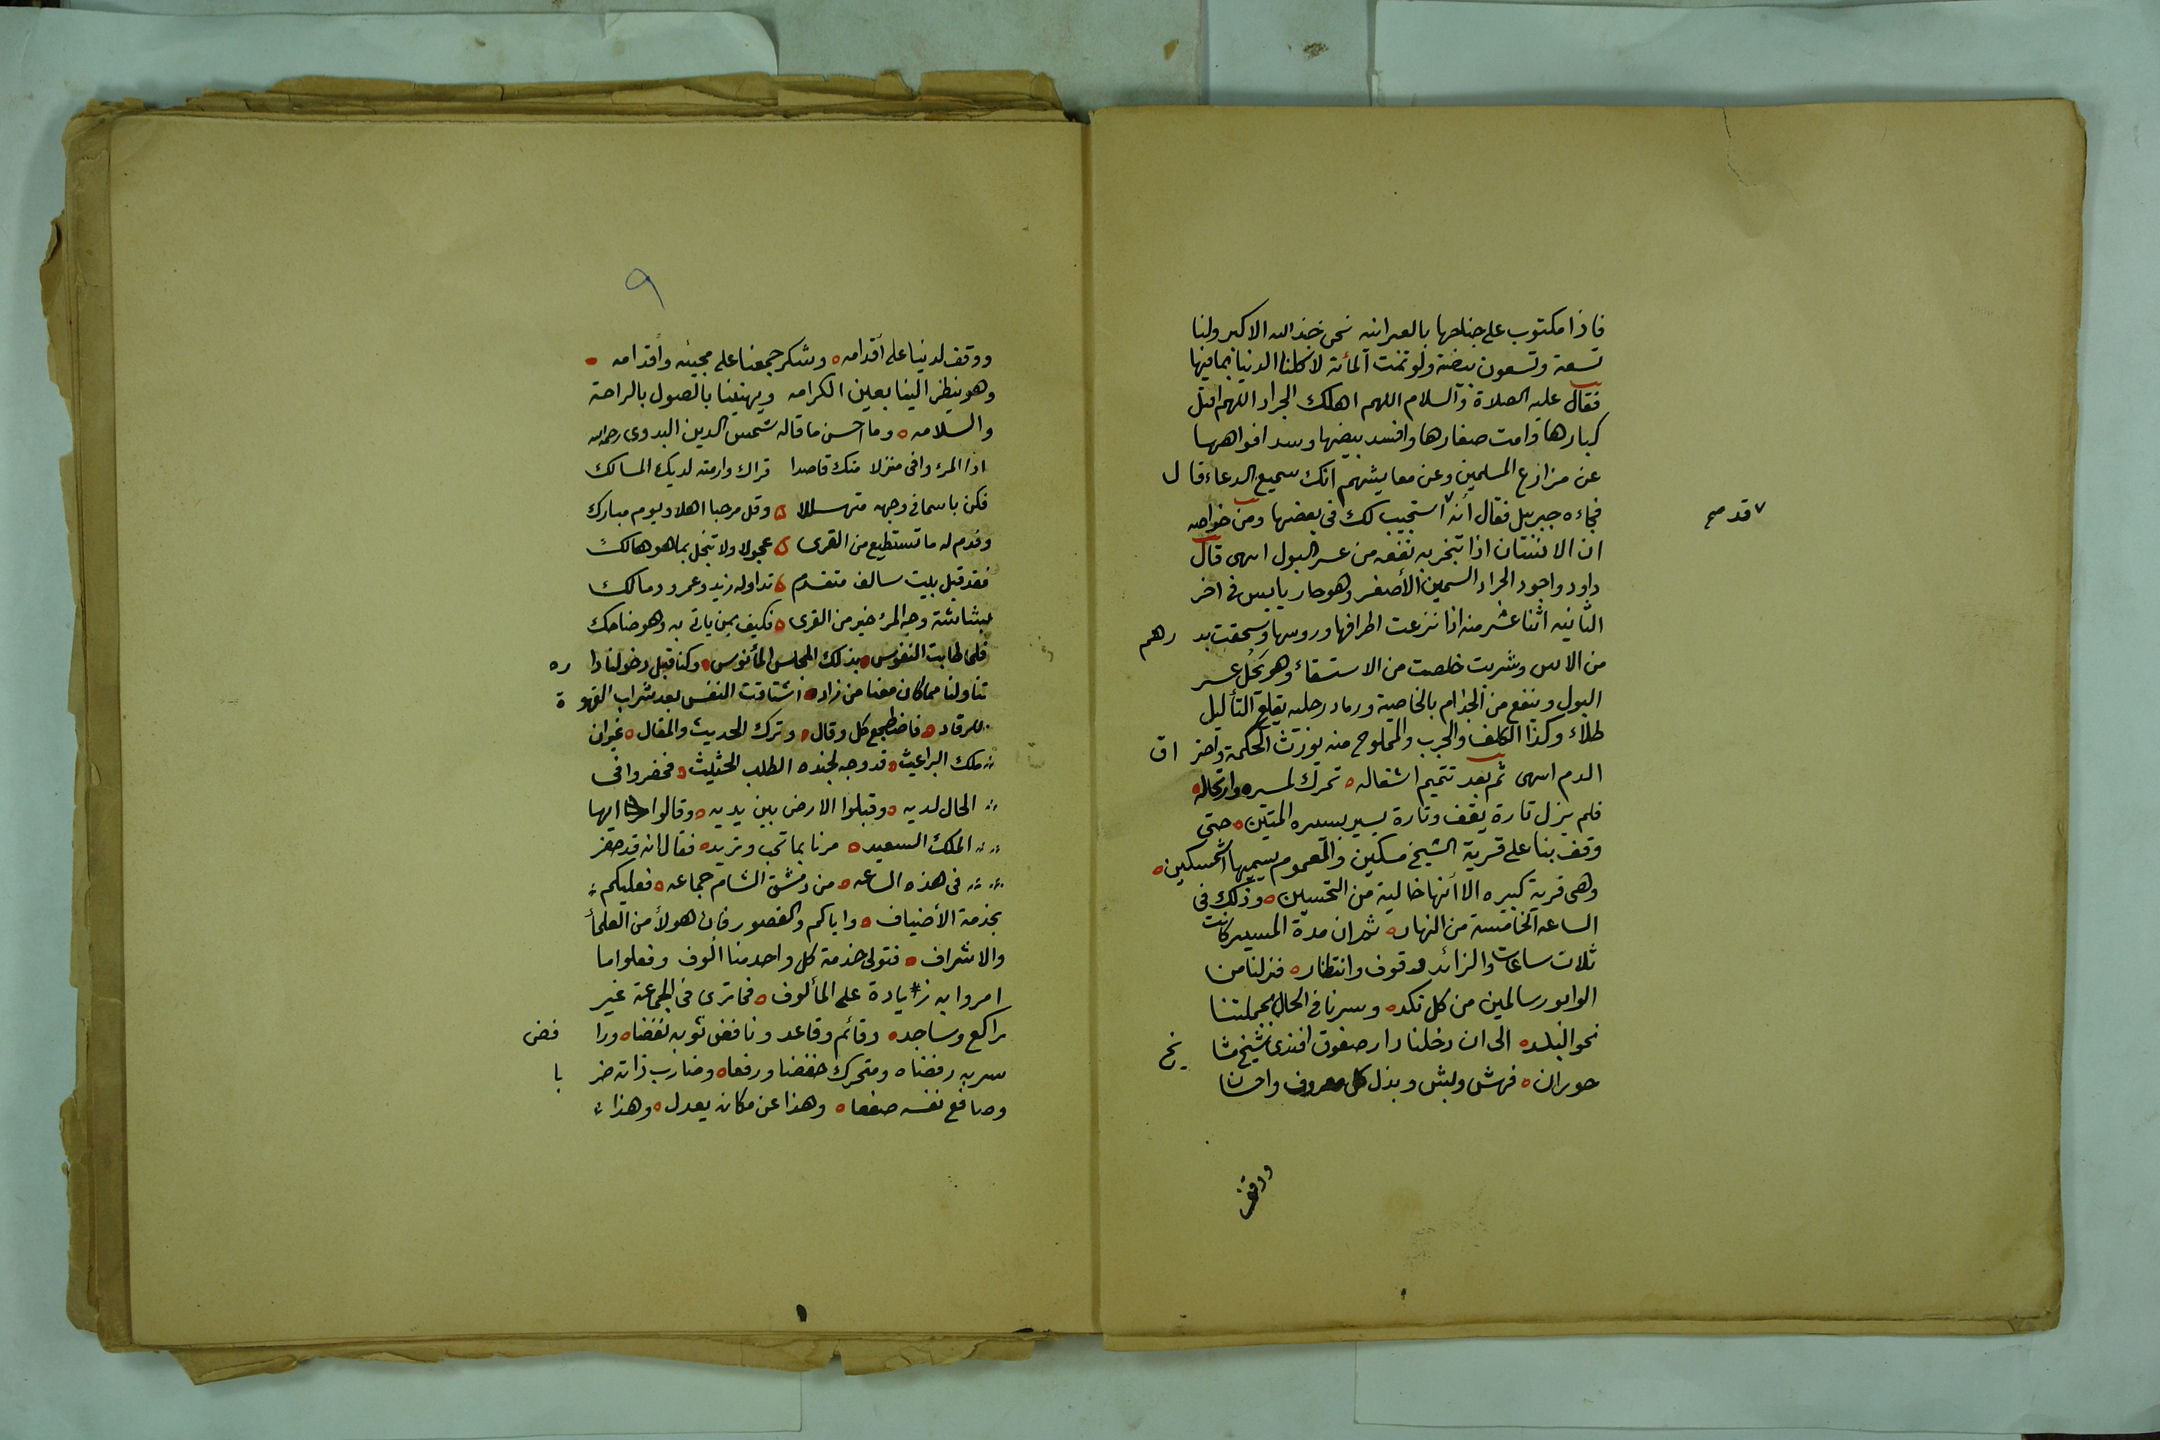 فاذا مكتوب على جناحها بالعبرانيه نحن جند الله الاكبر ولنا
تسعة وتسعون بيضة ولو تمت المأئة لاكلنا الدنيا بما فيها
فقال عليه الصلاة والسلام اللهم اهلك الجراد اللهم اقتل
كبارها وامت صغارها وافسد بيضها وسد افواهها
عن مزارع المسلمين وعن معايشهم انك سميع الدعاء قال
فجاءه جبريل فقال أنه استجيب لك في بعضها ومن خواصه
قد صح
ان الانسان اذا تبخر به نفعه من عسر البول انتهى قال
داود واجود الجراد السمين الأصفر وهو حار يابس في اخر
الثانيه اثنا عشر منه اذا نزعت اطرافها وروسها وسحقت بدرهم
من الاس وشربت خلصت من الاستسقاء وهو يحل عسر
البول وينفع من الجذام بالخاصية ورماد رجليه يقلع التأليل
طلاء وكذا الكلف والجرب والمملوح منه يورث الحكمة واحتراق
الدم انتهى ثم بعد تتميم اشغاله تحرك لمسيره وارتحاله
فلم يزل تارة يقف وتارة يسير بسيره المتين حتى
وقف بنا على قرية الشيخ مسكين والعموم يسميها اشمسكين
وهى قرية كبيره الا أنها خالية من التحسين وذلك فى
الساعه الخامسة من النهار ثم ان مدة المسير كانت
ثلاث ساعات والزائد وقوف وانتظار فنزلنا من
الوابور سالمين من كل نكد وسرنا في الحال بجملتنا
نحو البلد الى ان دخلنا دار صفوق افندى شيخ مشايخ
حوران فهش وبش وبذل كل معروف واحسان
ووقف
٩
ووقف لدينا على أقدامه وشكر جمعنا على مجيئه وأقدامه
وهو ينظر الينا بعين الكرامه ويهنينا بالوصول بالراحة
والسلامه وما احسن ما قاله شمس الدين البدوى رحمه الله
اذا المرء وافى منزلا منك قاصدا قراك وارمته لديك المسالك
فكن باسما في وجهه متهللا وقل مرحبا اهلا ويوم مبارك
وقدم له ما تستطيع من القرى عجولا ولا تبخل بما هو هالك
فقد قيل بيت سالف متقدم تداوله زيد وعمرو ومالك
بشاشة وجه المرء خير من القرى فكيف بمن ياتي به وهو ضاحك
فلما طابت النفوس بذلك المجلس المأنوس وكنا قبل دخولنا داره
تناولنا مما كان معنا من زاد اشتاقت النفس بعد شراب القهوة
للرقاد فاضطجع كل وقال وترك الحديث والمقال غير ان
ملك البراغيث قد وجه لجنده الطلب الحثيث فحضروا في
الحال لديه وقبلوا الارض بين يديه وقالوا ايها
الملك السعيد مرنا بما تحب وتريد فقال انه قد حضر
في هذه الساعه من دمشق الشام جماعه فعليكم
بخدمة الأضياف واياكم والقصور فان هولأ من العلمأ
والاشراف فتولى خدمة كل واحد منا ألوف وفعلوا ما
امروا به زيادة على المألوف فما ترى في الجماعة غير
راكع وساجد وقائم وقاعد ونافض ثوبه نفضا ورافض
سربه رفضا ومتحرك خفضا ورفعا وضارب ذاته ضربا
وصافع نفسه صفعا وهذا عن مكانه يعدل وهذا